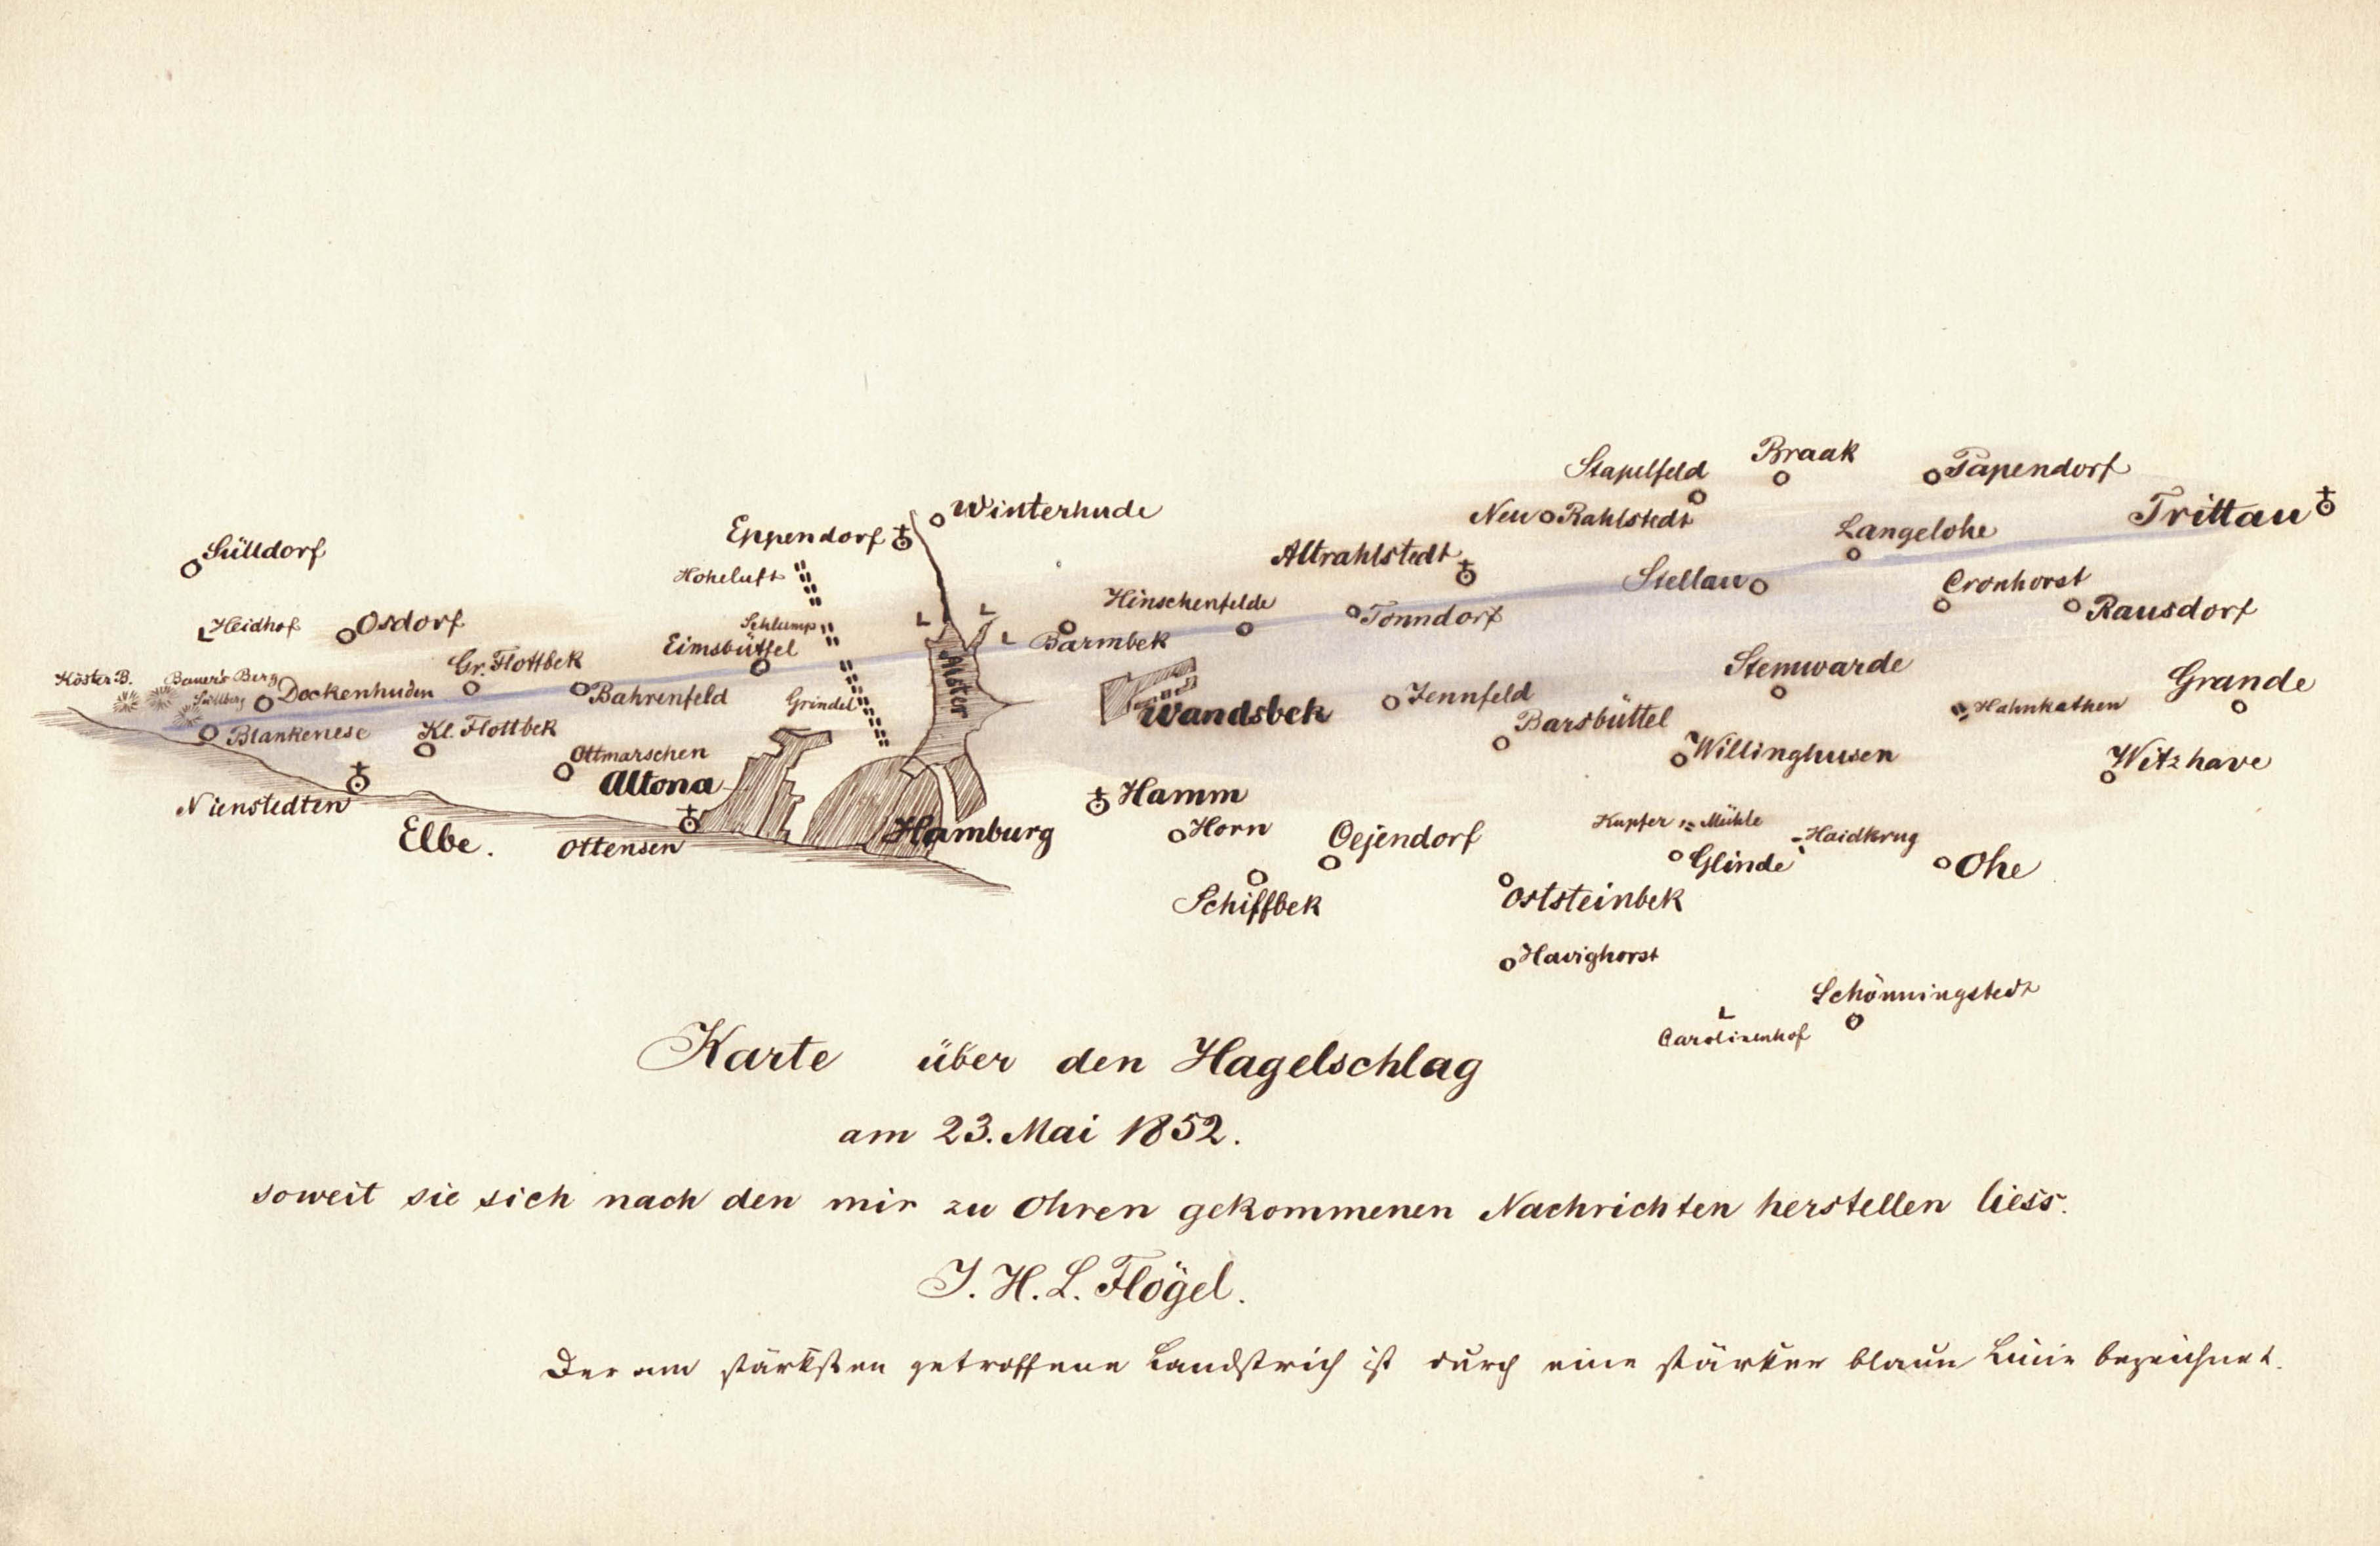 Braak
Stapelfeld
Papendorf
Neu Rahlstedt
Trittau
Winterhude
Eppendorf
Langelohe
Sülldorf
Altrahlstedt
Hoheluft
Stellau
Cronhorst
Hinschenfelde
Rausdorf
Tonndorf
Heidhof
Osdorf
Schlump
Eimsbüttel
Barmbek
Gr. Flottbek
Stemwarde
Köster B.
Bauer's Berg
Süllberg
Dockenhuden
Bahrenfeld
Grindel
Alster
Wandsbek
Jennfeld
Grande
Hahnkathen
Barsbüttel
Blankenese
Kl. Flottbek
Willinghusen
Ottmarschen
Witzhave
Altona
Hamm
Nienstedten
Elbe.
Ottensen
Hamburg
Horn
Oejendorf
Kupfer Mühle
Haidkrug
Glinde
Ohe
Schiffbek
Oststeinbek
Havighorst
Schönningstedt
Carolinenhof
Karte über den Hagelschlag
am 23. Mai 1852.
soweit sie sich nach den mir zu Ohren gekommenen Nachrichten herstellen liess.
J. H. L. Flögel.
Der am stärksten getroffene Landstrich ist durch eine stärker blaue Linie bezeichnet.